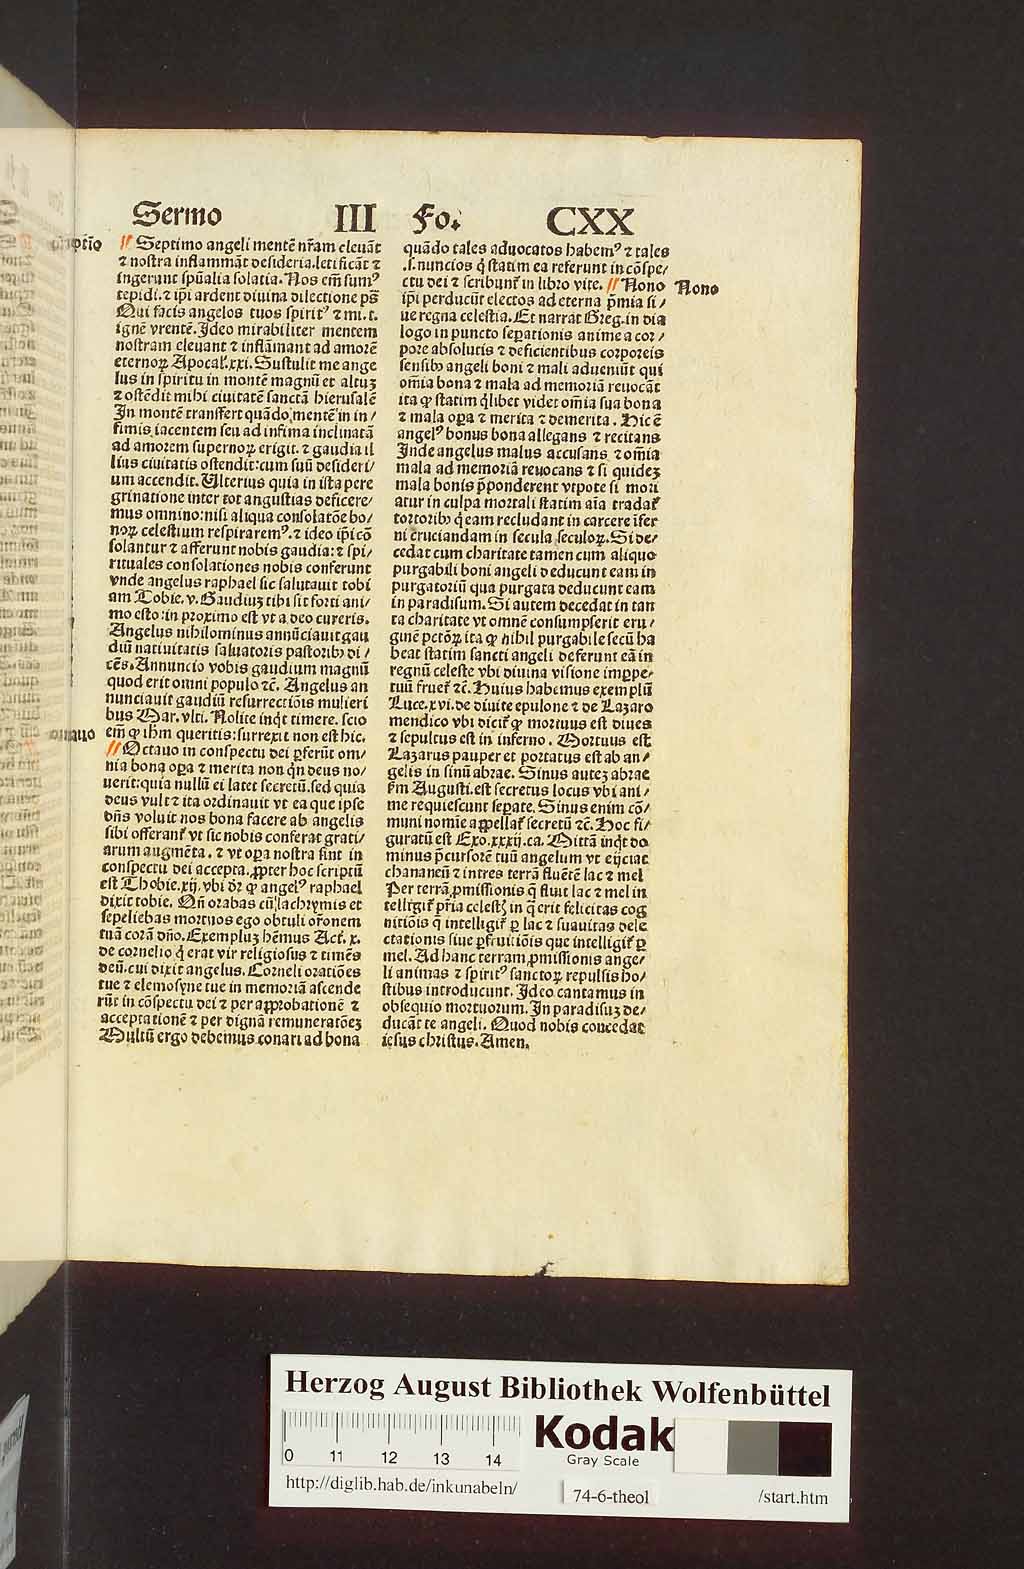 Sermo III Fo. CXX
⸿ Septimo angeli mentē nr̄am eleuāt
⁊ nostra inflammāt desideria. letificāt ⁊
ingerunt spūalia solatia. Nos em̄ sumꝰ
tepidi. ⁊ ip̄i ardent diuina dilectione ps̄
Qui facis angelos tuos spiritꝰ ⁊ mi. t.
ignē vrentē. Ideo mirabiliter mentem
nostram eleuant ⁊ inflāmant ad amorē
eternoꝝ Apocal'. xxi. Sustulit me ange
lus in spiritu in montē magnū et altuꝫ
⁊ ostēdit mihi ciuitatē sanctā hierusalē
In montē transffert quādo mentē in in/
fimis iacentem seu ad infima inclinatā
ad amorem supernoꝝ erigit. ⁊ gaudia il
lius ciuitatis ostendit: cum suū desideri/
um accendit. Ulterius quia in ista pere
grinatione inter tot angustias deficere/
mus omnino: nisi aliqua consolatōe bo/
noꝝ celestium respiraremꝰ. ⁊ ideo ip̄i cō
solantur ⁊ afferunt nobis gaudia: ⁊ spi/
rituales consolationes nobis conferunt
vnde angelus raphael sic salutauit tobi
am Tobie. v. Gaudiuꝫ tibi sit forti ani/
mo esto: in proximo est vt a deo cureris.
Angelus nihilominus annūciauit gau
diū natiuitatis saluatoris pastoribꝫ di/
cēs. Annuncio vobis gaudium magnū
quod erit omni populo ⁊c̄. Angelus an
nunciauit gaudiū resurrectiōis mulieri
bus Mar. vlti. Nolite inqt timere. scio
em̄ ꝙ ihm queritis: surrexit non est hic.
⸿ Octauo in conspectu dei ꝑferūt om/
nia bona oꝑa ⁊ merita non qn̄ deus no/
uerit: quia nullū ei latet secretū. sed quia
deus vult ⁊ ita ordinauit vt ea que ipse
dn̄s voluit nos bona facere ab angelis
sibi offerant' vt sic nobis conferat grati/
arum augmēta. ⁊ vt oꝑa nostra sint in
conspectu dei accepta. ꝓpter hoc scriptū
est Thobie. xij. vbi dr̄ ꝙ angelꝰ raphael
dixit tobie. Qn̄ orabas cū lachrymis et
sepeliebas mortuos ego obtuli or̄onem
tuā corā dn̄o. Exempluꝫ hēmus Act'. x.
de cornelio q̇ erat vir religiosus ⁊ timēs
deū. cui dixit angelus. Corneli oratiōes
tue ⁊ elemosyne tue in memoriā ascende
rūt in cōspectu dei ⁊ per approbationē ⁊
acceptationē ⁊ per dignā remuneratōeꝫ
Multū ergo debemus conari ad bona
quādo tales aduocatos habemꝰ ⁊ tales
.s. nuncios q̇ statim ea referunt in cōspe/
ctu dei ⁊ scribunt' in libro vite. ⸿ Nono
Nono
ip̄i perducūt electos ad eterna p̄mia si/
ue regna celestia. Et narrat Greg. in dia
logo in puncto seꝑationis anime a cor/
pore absolutis ⁊ deficientibus corporeis
sensibꝫ angeli boni ⁊ mali adueniūt qui
om̄ia bona ⁊ mala ad memoriā reuocāt
ita ꝙ statim q̇libet videt om̄ia sua bona
⁊ mala oꝑa ⁊ merita ⁊ demerita. Hic ē
angelꝰ bonus bona allegans ⁊ recitans
Inde angelus malus accusans ⁊ om̄ia
mala ad memoriā reuocans ⁊ si quideꝫ
mala bonis p̄ponderent vtpote si mori
atur in culpa mortali statim aīa tradat'
tortoribꝫ q̇ eam recludant in carcere īfer
ni cruciandam in secula seculoꝝ. Si de/
cedat cum charitate tamen cum aliquo
purgabili boni angeli deducunt eam in
purgatoriū qua purgata deducunt eam
in paradisum. Si autem decedat in tan
ta charitate vt omnē consumpserit eru/
ginē pctōꝝ ita ꝙ nihil purgabile secū ha
beat statim sancti angeli deferunt eā in
regnū celeste vbi diuina visione imꝑpe/
tuū fruet' ⁊c̄. Huius habemus exemplū
Luce. xvi. de diuite epulone ⁊ de Lazaro
mendico vbi dicit' ꝙ mortuus est diues
⁊ sepultus est in inferno. Mortuus est
Lazarus pauper et portatus est ab an/
gelis in sinū abrae. Sinus auteꝫ abrae
ẜm Augusti. est secretus locus vbi ani/
me requiescunt seꝑate. Sinus enim cō/
muni nomīe appellat' secretū ⁊c̄. Hoc fi/
guratū est Exo. xxxij. ca. Mittā inqt do
minus p̄cursorē tuū angelum vt eijciat
chananeū ⁊ intres terrā fluētē lac ⁊ mel
Per terrā ꝓmissionis q̄ fluit lac ⁊ mel in
telligit' pr̄ia celestꝭ in q̄ erit felicitas cog
nitiōis q̄ intelligit' ꝑ lac ⁊ suauitas dele
ctationis siue ꝑfruitiōis que intelligit' ꝑ
mel. Ad hanc terram ꝓmissionis ange/
li animas ⁊ spiritꝰ sanctoꝝ repulsis ho/
stibus introducunt. Ideo cantamus in
obsequio mortuorum. In paradisuꝫ de/
ducāt te angeli. Quod nobis concedat
iesus christus. Amen.
Herzog August Bibliothek Wolfenbüttel
0 11 12 13 14
Kodak
Gray Scale
http://diglib.hab.de/inkunabeln/
74-6-theol
/start.htm